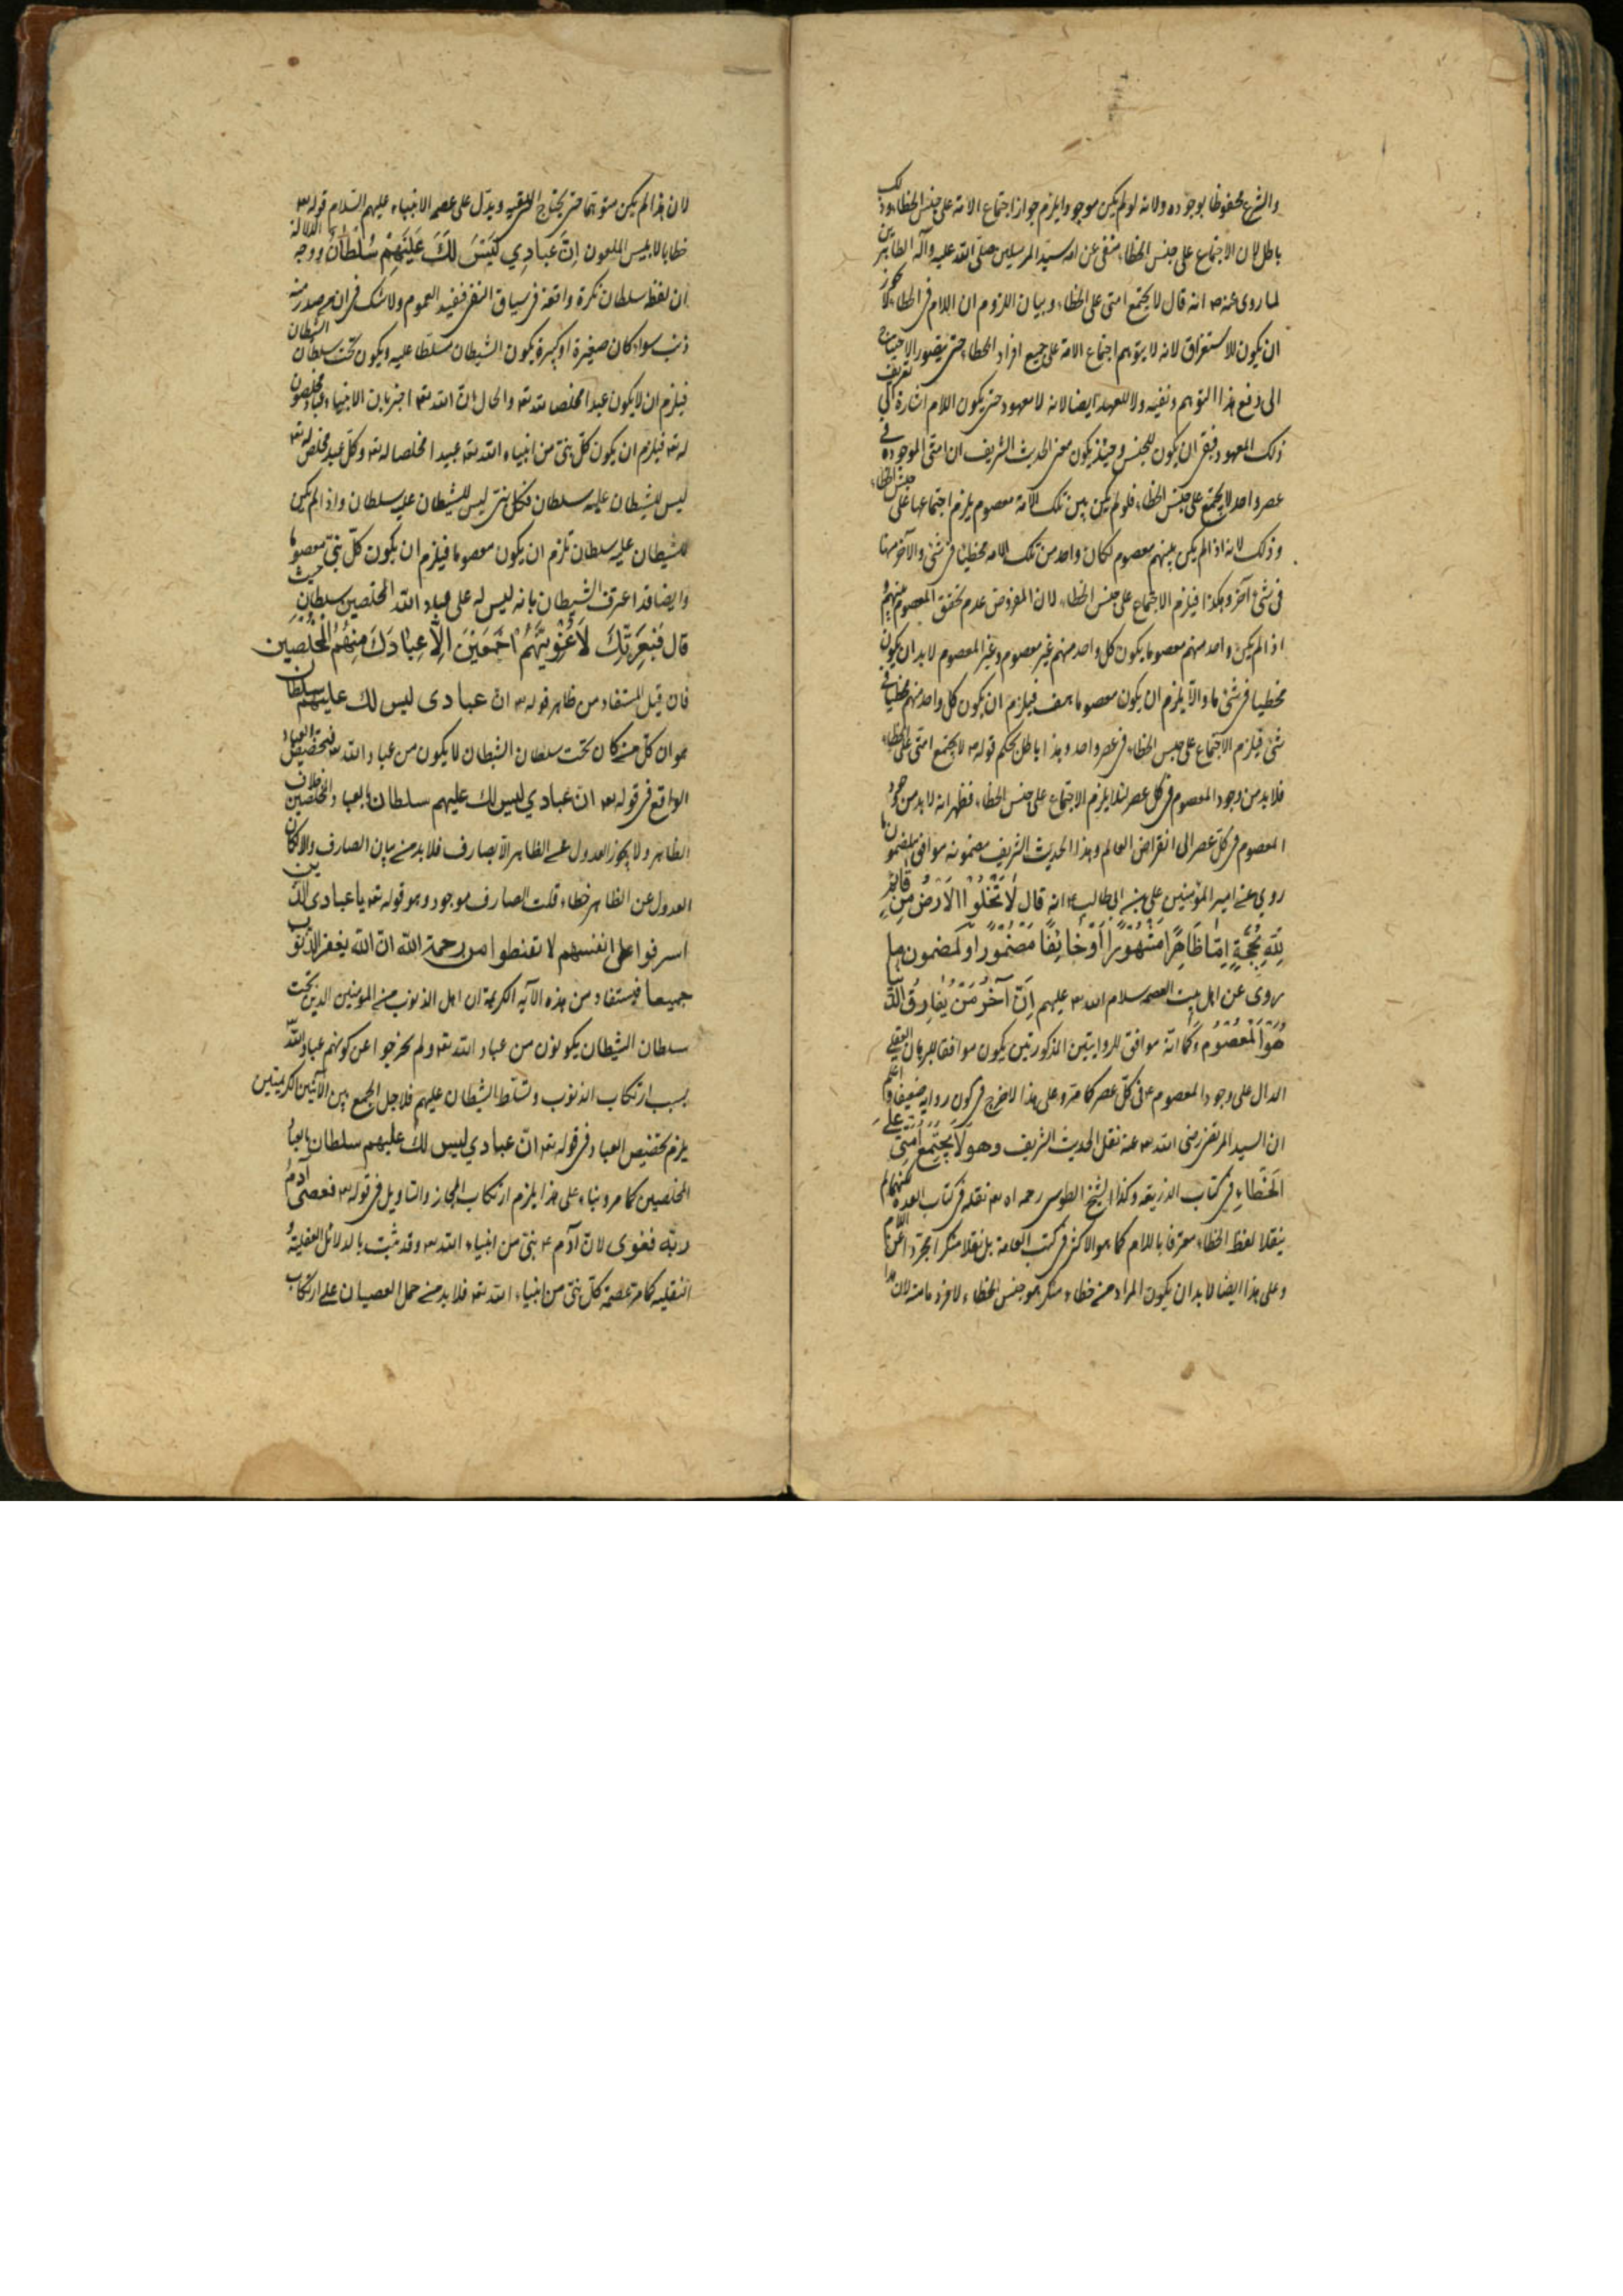 والشرع محفوظا بوجوده ولانه لو لم يكن موجودا يلزم جواز اجتماع الامة على جنس الخطاء وذلك
باطل لان الاجتماع على جنس الخطاء منفى عن امة سيد المرسلين صلى الله عليه وآله الطاهرين
لما روى عنه ص انه قال لا يجتمع امتى على الخطاء وبيان اللزوم ان اللام فى الخطاء لا يجوز
ان يكون للاستغراق لانه لا يتوهم اجتماع الامة على جميع افراد الخطاء حتى يتصور الاحتياج
الى دفع هذا التوهم ونفيه ولا للعهد ايضا لانه لا معهود حتى يكون اللام اشارة الى تعريف
ذلك المعهود فبقى ان يكون للجنس وحينئذ يكون معنى الحديث الشريف ان امتى الموجودة فى
عصر واحد لا يجتمع على جنس الخطاء فلو لم يكن بين تلك الامة معصوم يلزم اجتماعها على جنس الخطاء
وذلك لانه اذا لم يكن بينهم معصوم لكان واحد من تلك الامة مخطيا فى شئ والآخر منها
فى شئ آخر وهكذا فيلزم الاجتماع على جنس الخطاء لان المفروض عدم تحقق المعصوم بينهم و
اذا لم يكن واحد منهم معصوما يكون كل واحد منهم غير معصوم وغير المعصوم لابد ان يكون
مخطيا فى شئ ما والا يلزم ان يكون معصوما هف فيلزم ان يكون كل واحد منهم مخطيا فى
شئ فيلزم الاجتماع على جنس الخطاء فى عصر واحد وهذا باطل بحكم قوله ص لا يجتمع امتى على الخطاء
فلابد من وجود المعصوم فى كل عصر لئلا يلزم الاجتماع على جنس الخطاء فظهر انه لابد من وجود
المعصوم فى كل عصر الى انقراض العالم وهذا الحديث الشريف مضمونه موافق لمضمون ما
روي عن امير المؤمنين على بن ابى طالب ع انه قال لَا تَخْلُوا الْاَرْضُ مِنْ قَائِمٍ
لِلّهِ بِحُجَّةٍ اِمَّا ظَاهِرًا مَشْهُورًا اَوْ خَائِفًا مَغْمُورًا ولمضمون ما
روى عن اهل بيت العصمه سلام الله عليهم اِنَّ آخَرُ مَنْ يُفَارِقُ الدُّنْيَا
هُوَ الْمَعْصُومُ كما انه موافق للروايتين المذكورتين يكون موافقا للبرهان العقلى
الدال على وجود المعصوم ع فى كل عصر كما مر وعلى هذا لا حرج فى كون روايه ضعيفا واعلم
ان السيد المرتضى رضى الله عنه نقل الحديث الشريف وهو لَا يَجْتَمِعُ اُمَّتِى عَلَى
الْخَطَاءِ فى كتاب الذريعة وكذا الشيخ الطوسى رحمه اله نقله فى كتاب العدة لكنهما لم
ينقلا لفظ الخطاء معرفا باللام كما هو الاكثر فى كتب العامة بل نقلا منكرا مجردا عن اللام
وعلى هذا ايضا لابد ان يكون المراد من خطاء منكر هو جنس الخطاء لا فرد ما منه لان هذا
لان هذا لم يكن متوهما حتى يحتاج الى نفيه ويدل على عصمة الانبياء عليهم السلام قوله تعه
خطابا لابليس الملعون اِنَّ عِبَادِي لَيْسَ لَكَ عَلَيْهِمْ سُلْطَانٌ ووجه الدلالة
ان لفظ سلطان نكرة واقعة فى سياق النفى فيفيد العموم ولا شك فى ان من صدر منه
ذنب سواء كان صغيرة او كبيرة يكون الشيطان مسلطا عليه ويكون تحت سلطان الشيطان
فيلزم ان لا يكون عبدا مخلصا لله تعه والحال ان الله تعه اخبر بان الانبياء عباد مخلصون
له تعه فيلزم ان يكون كل نبى من انبياء الله تعه عبيدا مخلصا له تعه وكل عبد مخلص له تعه
ليس للشيطان عليه سلطان فكل نبى ليس للشيطان عليه سلطان واذا لم يكن
للشيطان عليه سلطان تلزم ان يكون معصوما فيلزم ان يكون كل نبى معصوما
وايضا قد اعترف الشيطان بانه ليس له على عباد الله المخلصين سلطان حيث
قال فَبِعِزَّتِكَ لَاُغْوِيَنَّهُمْ اَجْمَعِينَ اِلَّا عِبَادَكَ مِنْهُمُ الْمُخْلَصِين
فان قيل المستفاد من ظاهر قوله تعه ان عبادى ليس لك عليهم سلطان
هو ان كل من كان تحت سلطان الشيطان لا يكون من عباد الله تعه فتخصيص العباد
الواقع فى قوله تعه ان عبادي ليس لك عليهم سلطان بالعباد المخلصين خلاف
الظاهر ولا يجوز العدول عن الظاهر الا بصارف فلابد من بيان الصارف والا لكان
العدول عن الظاهر خطاء قلت الصارف موجود وهو قوله تعه يا عبادى الذين
اسرفوا على انفسهم لا تقنطوا من رحمة الله ان الله يغفر الذنوب
جميعا فيستفاد من هذه الآيه الكريمة ان اهل الذنوب من المؤمنين الذين تحت
سلطان الشيطان يكونون من عباد الله تعه ولم يخرجوا عن كونهم عباد الله
بسبب ارتكاب الذنوب وتسلط الشيطان عليهم فلاجل الجمع بين الآيتين الكريمتين
يلزم تخصيص العباد فى قوله تعه ان عبادي ليس لك عليهم سلطان بالعباد
المخلصين كما مر وبناء على هذا يلزم ارتكاب المجاز والتاويل فى قوله تعه فعصى آدم
ربه فغوى لان آدم ع نبى من انبياء الله تعه وقد ثبت بالدلائل العقلية و
النقليه كما مر عصمة كل نبى من انبياء الله تعه فلابد من حمل العصيان على ارتكاب